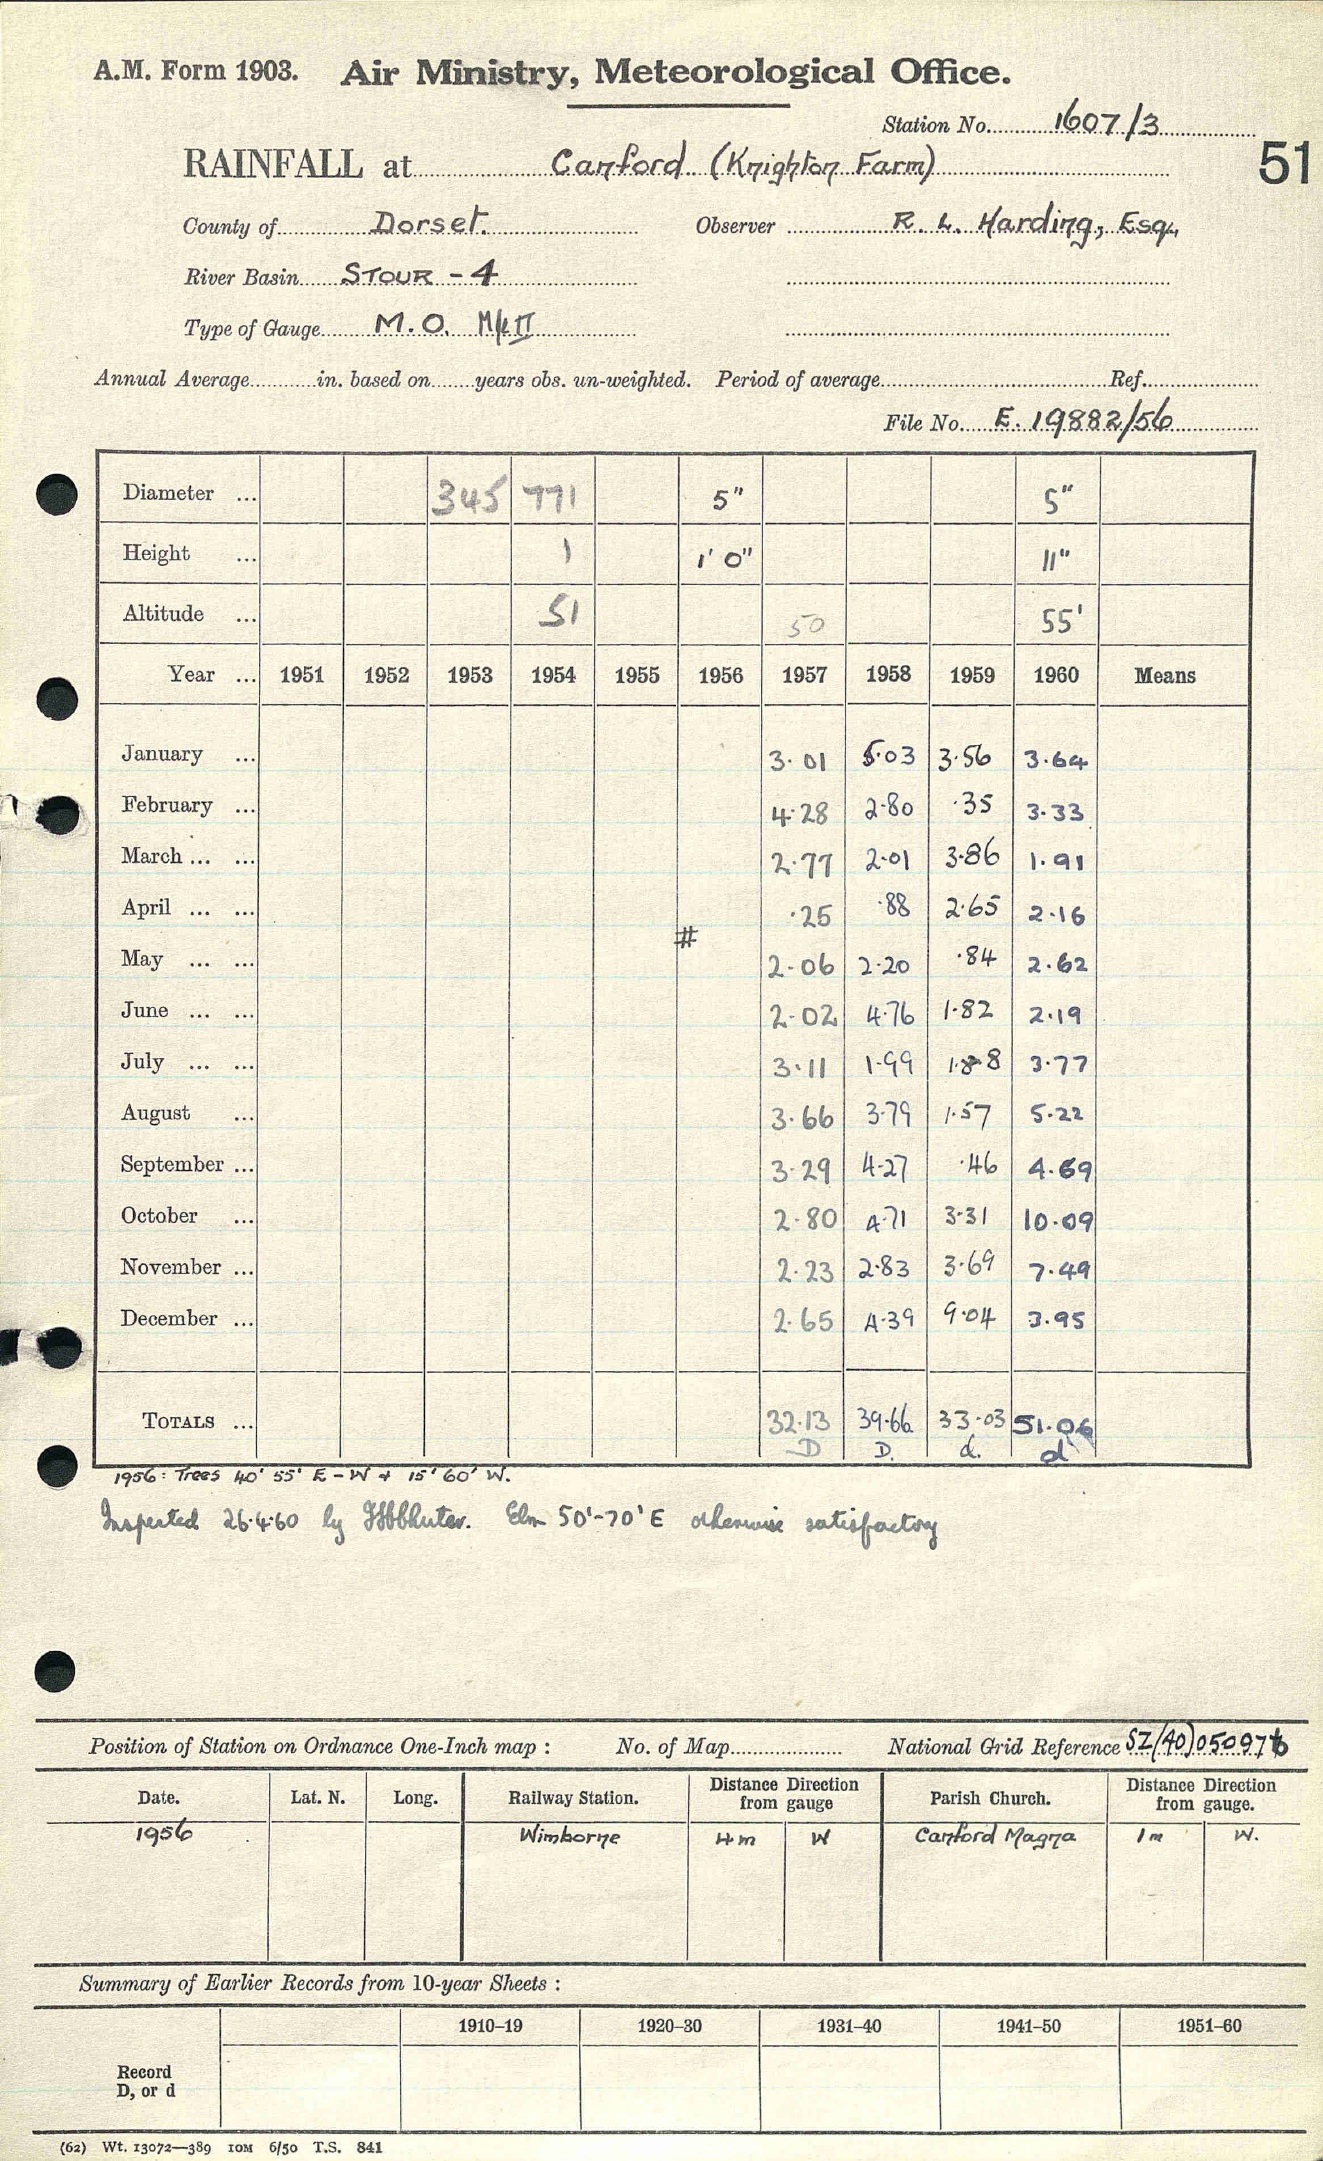 A.M. Form 1903. Air Ministry, Meteorological Office.
Station No. 1607/3
RAINFALL at Canford (Knighton Farm)
51
County of Dorset. Observer R. L. Harding, Esq.,
River Basin STOUR - 4
Type of Gauge M.O. Mk II
Annual Average in. based on years obs. un-weighted. Period of average Ref.
File No. E. 19882/56
Diameter ... 345 771 5" 5"
Height ... 1 1' 0" 11"
Altitude ... 51 50 55'
Year ... 1951 1952 1953 1954 1955 1956 1957 1958 1959 1960 Means
January ... 3.01 5.03 3.56 3.64
February ... 4.28 2.80 .35 3.33
March ... ... 2.77 2.01 3.86 1.91
April ... ... .25 .88 2.65 2.16
#
May ... ... 2.06 2.20 .84 2.62
June ... ... 2.02 4.76 1.82 2.19
July ... ... 3.11 1.99 1.88 3.77
August ... 3.66 3.79 1.57 5.22
September ... 3.29 4.27 .46 4.69
October ... 2.80 4.71 3.31 10.09
November ... 2.23 2.83 3.69 7.49
December ... 2.65 4.39 9.04 3.95
TOTALS ... 32.13 39.66 33.03 51.06
D D. d. d
1956: Trees 40' 55' E - W + 15' 60' W.
Inspected 26.4.60 by Elm 50'-70' E otherwise satisfactory
Position of Station on Ordnance One-Inch map : No. of Map National Grid Reference SZ/(40)050976
Date. Lat. N. Long. Railway Station. Distance Direction from gauge Parish Church. Distance Direction from gauge.
1956 Wimborne 4m W Canford Magna 1m W.
Summary of Earlier Records from 10-year Sheets :
1910–19 1920–30 1931–40 1941–50 1951–60
Record
D, or d
(62) Wt. 13072—389 10M 6/50 T.S. 841